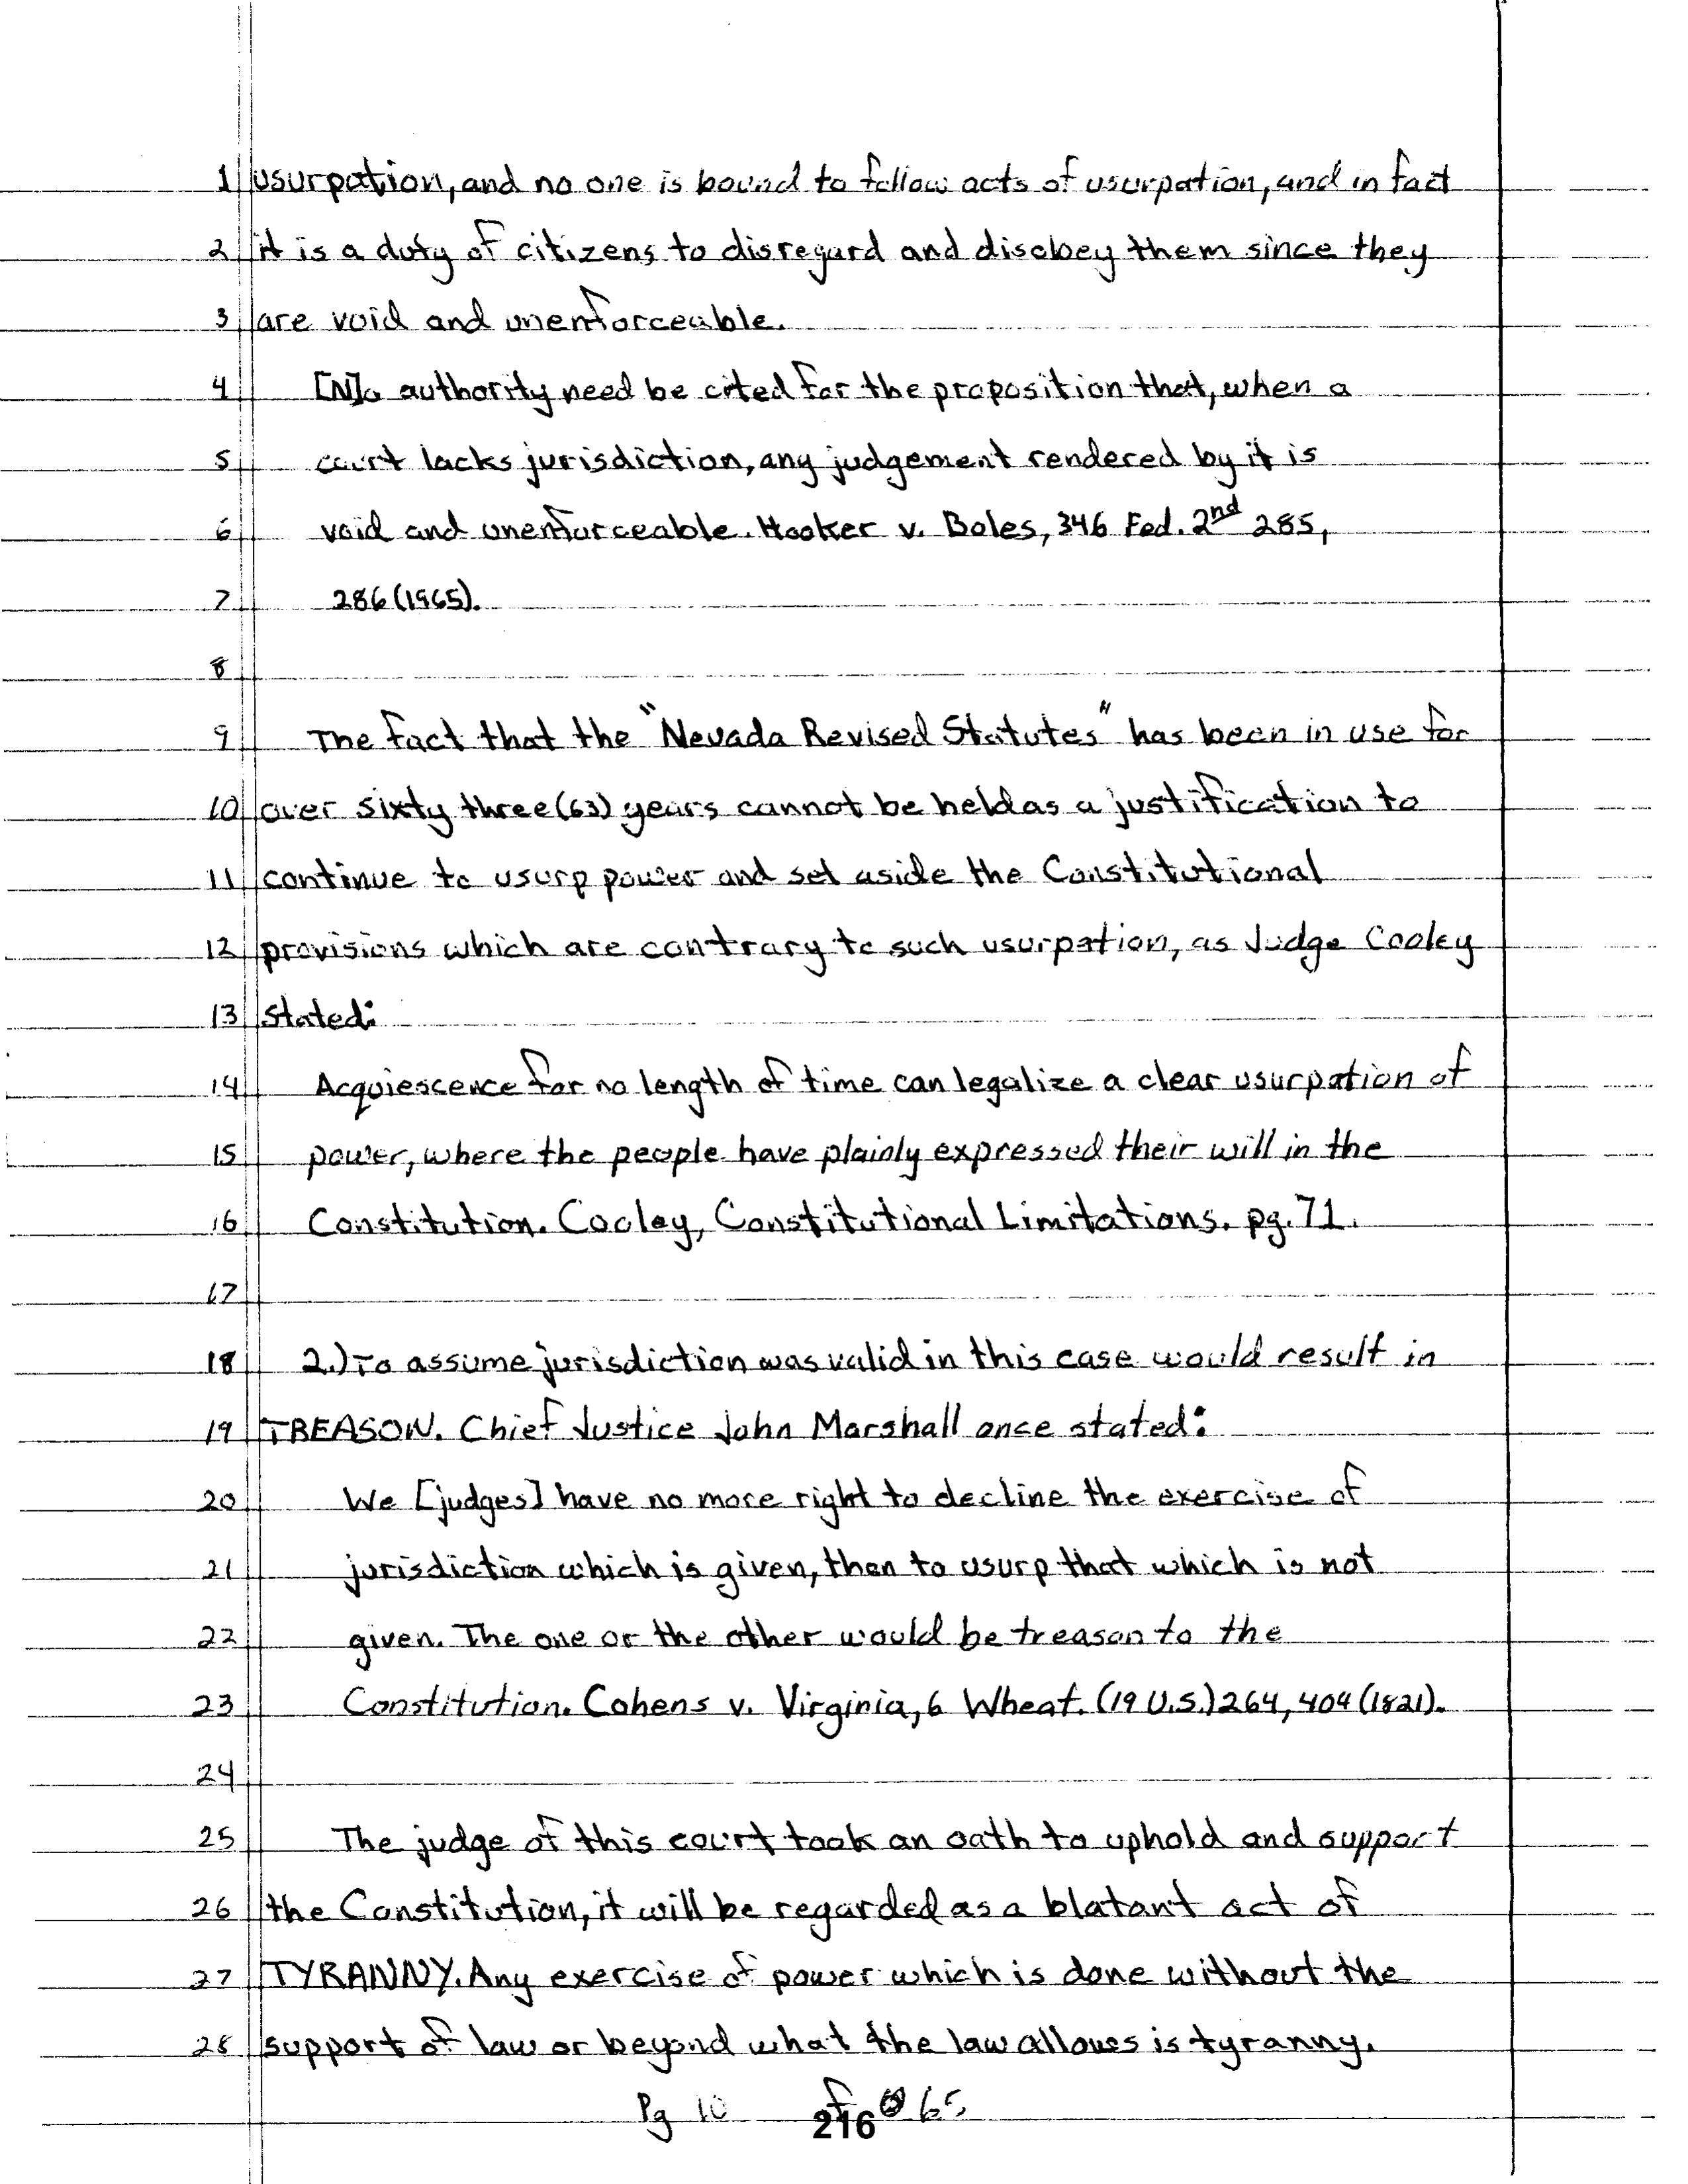 1 usurpation, and no one is bound to follow acts of usurpation, and in fact
2 it is a duty of citizens to disregard and disobey them since they
3 are void and unenforceable.
4 [N]o authority need be cited for the proposition that, when a
5 court lacks jurisdiction, any judgement rendered by it is
6 void and unenforceable. Hooker v. Boles, 346 Fed. 2nd 285,
7 286 (1965).
8
9 The fact that the "Nevada Revised Statutes" has been in use for
10 over sixty three (63) years cannot be held as a justification to
11 continue to usurp power and set aside the Constitutional
12 provisions which are contrary to such usurpation, as Judge Cooley
13 stated:
14 Acquiescence for no length of time can legalize a clear usurpation of
15 power, where the people have plainly expressed their will in the
16 Constitution. Cooley, Constitutional Limitations. pg. 71.
17
18 2.) To assume jurisdiction was valid in this case would result in
19 TREASON. Chief Justice John Marshall once stated:
20 We [judges] have no more right to decline the exercise of
21 jurisdiction which is given, then to usurp that which is not
22 given. The one or the other would be treason to the
23 Constitution. Cohens v. Virginia, 6 Wheat. (19 U.S.) 264, 404 (1821).
24
25 The judge of this court took an oath to uphold and support
26 the Constitution, it will be regarded as a blatant act of
27 TYRANNY. Any exercise of power which is done without the
28 support of law or beyond what the law allowes is tyranny.
Pg 10 of 65
216